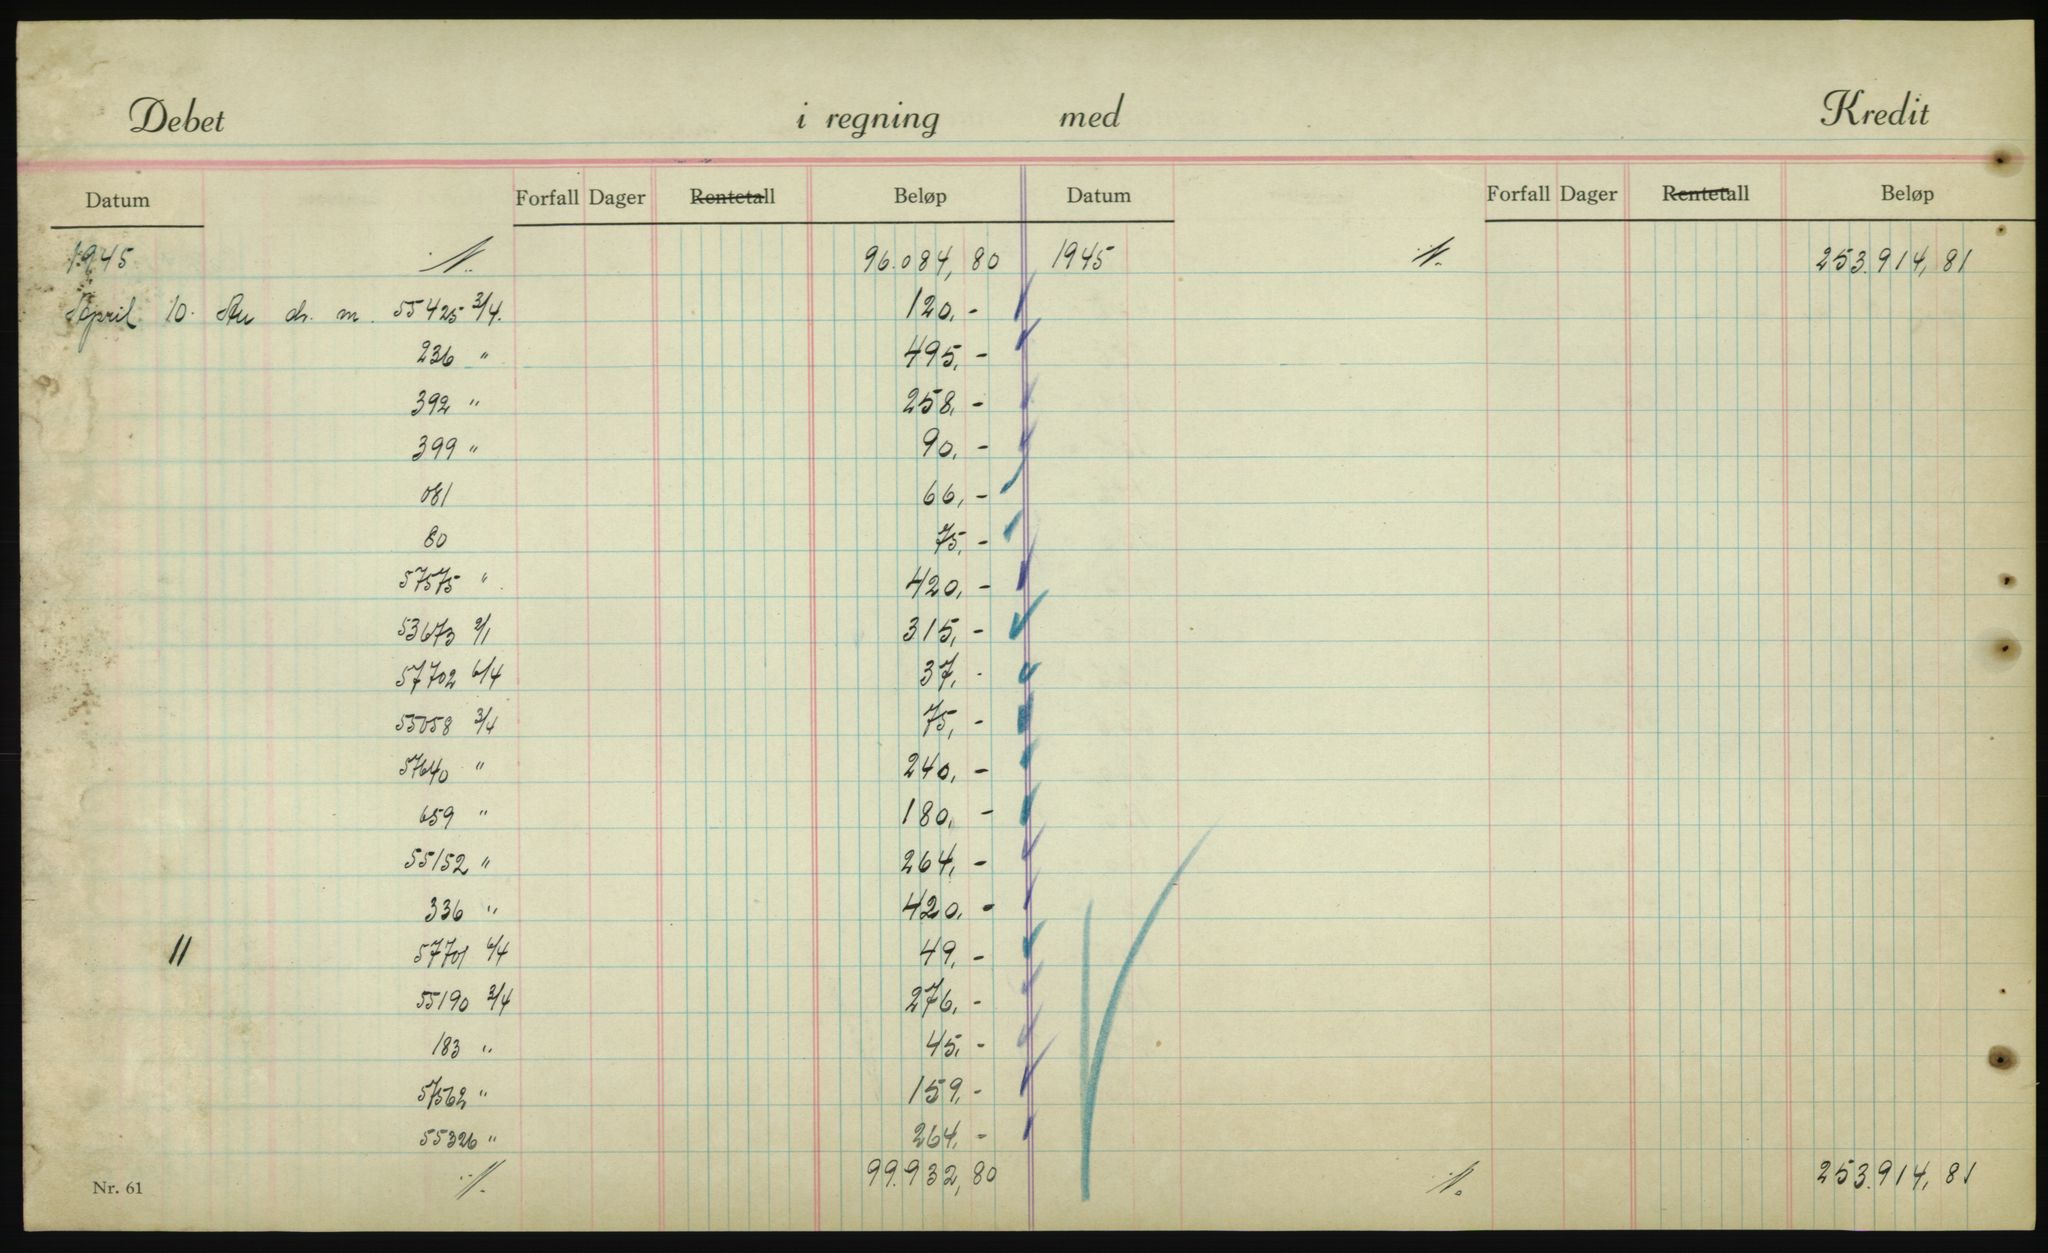 Debet i regning med Kredit
Datum Forfall Dager Rentetall Beløp Datum Forfall Dager Rentetall Beløp
1945 96.084,80 1945 253.914,81
April 10. m. 55425 3/4. 120,-
236 " 495,-
392 " 258,-
399 " 90,-
081 66,-
80 75,-
57575 " 420,-
53673 2/1 315,-
57702 6/4 37,-
55058 3/4 75,-
57640 " 240,-
659 " 180,-
55152 " 264,-
336 " 420,-
11 57701 6/4 49,-
55190 3/4 276,-
183 " 45,-
57562 " 159,-
55326 " 264,-
Nr. 61 99.932,80 253.914,81